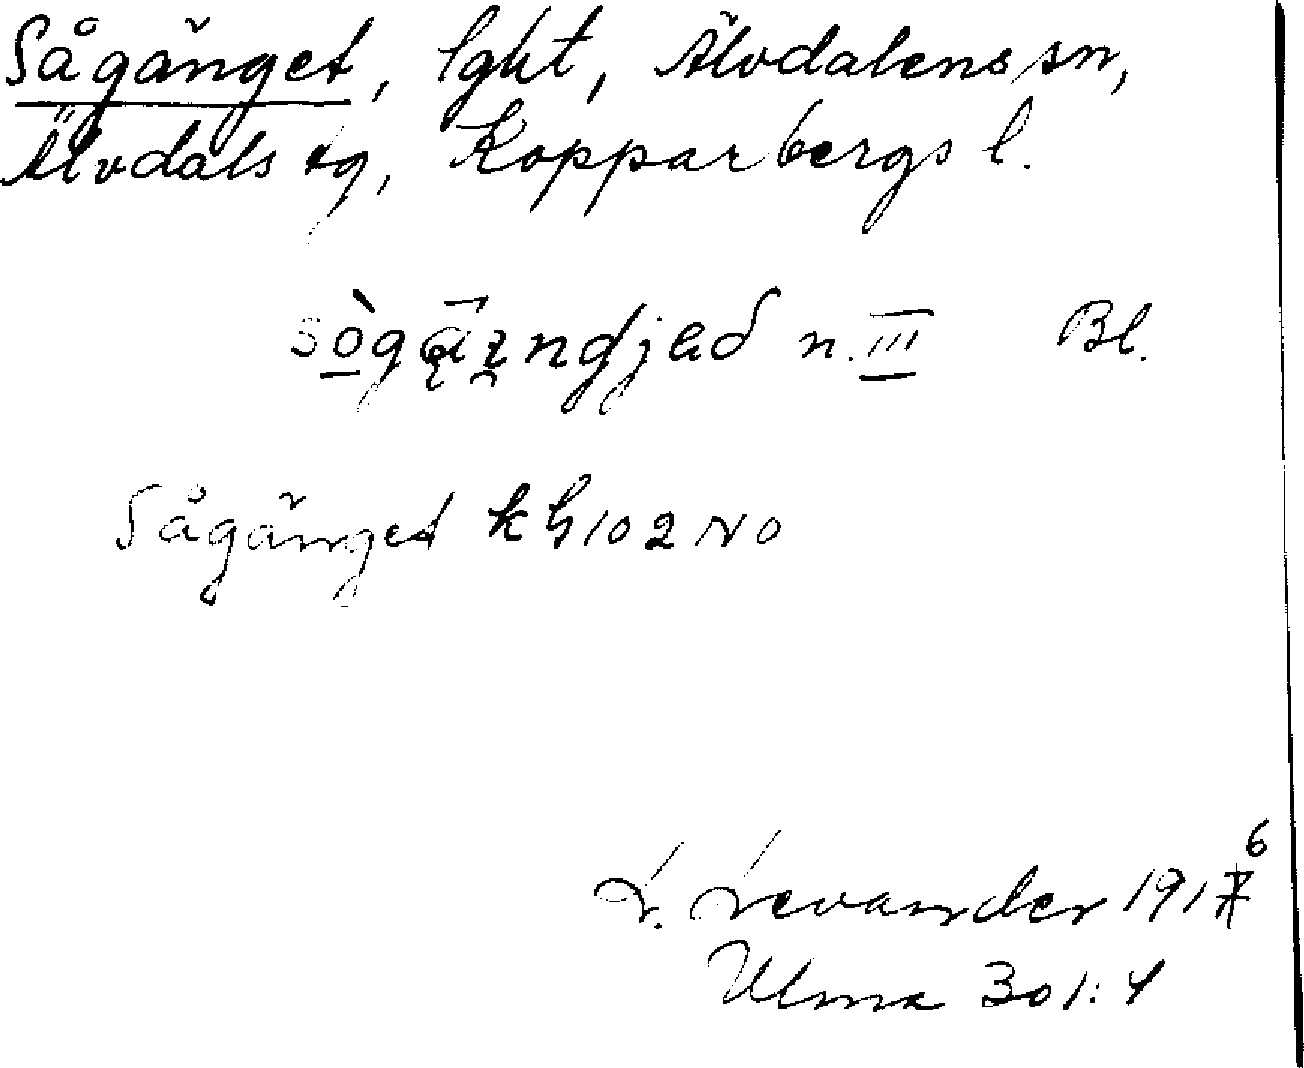 Sågänget, lght, Älvdalens sn,
Älvdals tg, Kopparbergs l.
n. III Bl.
Sågänget kh 102 NO
L. Levander 1916
Ulma 301:4